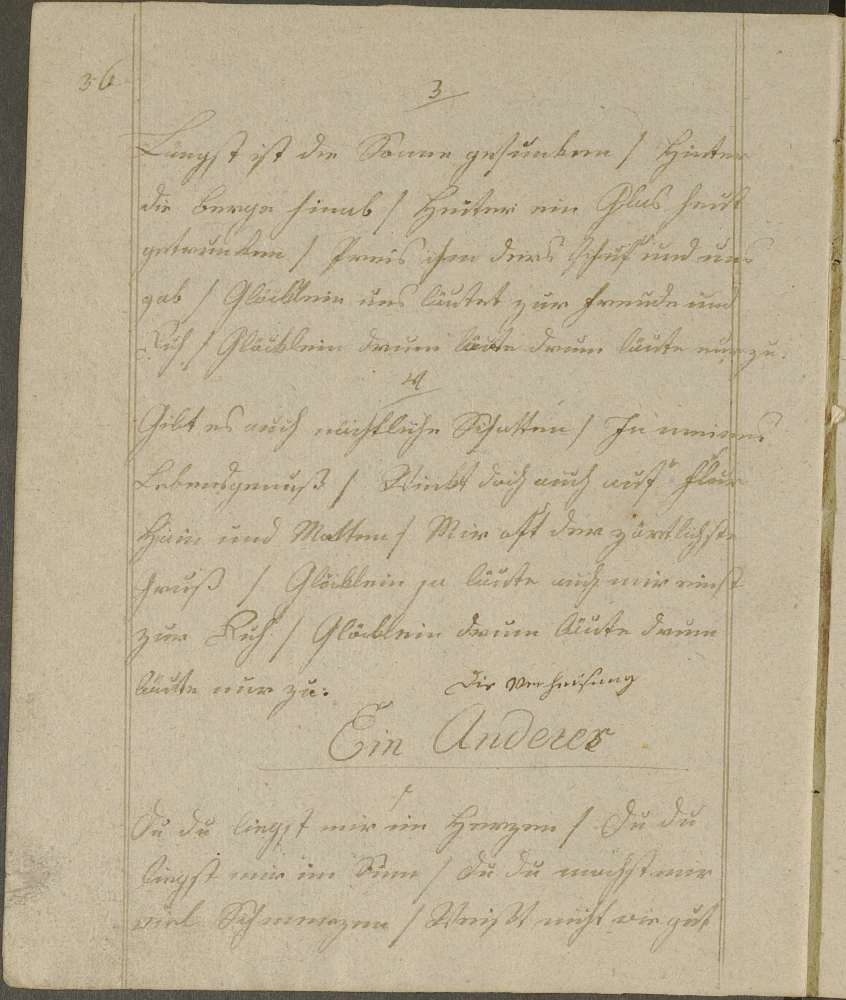 36
3
Längst ist die Sonne gesunken / Hinter
die berge hinab / Heiter ein Glas heut
getrunken / Preis ihm ders schuf und uns
gab / Glöcklein uns läutet zur freude und
Ruh / Glöcklein drum läute drum läute nur zu.
4
Gibt es auch nächtliche Schatten / In meines
Lebensgenuß / Winkt doch auch auf Flur
Hain und Matten / Mir oft der zärtlichste
Gruß / Glöcklein ja läute auch mir einst
zur Ruh / Glöcklein drum läute drum
läute nur zu:
Die
Ein Anderes
1
Du du liegst mir im Herzen / Du du
liegst mir im Sinn / Du du machst mir
viel Schmerzen / Weißt nicht wie gut